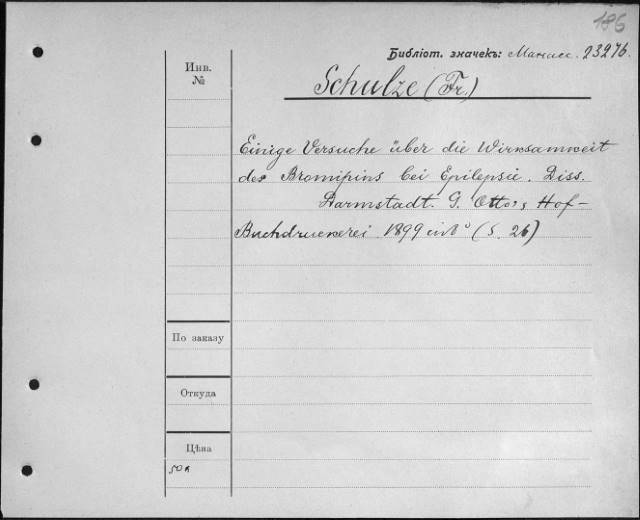 186
Библіот. значекъ: Манасс. 23276.
Инв.
№
Schulze (Fr.)
Einige Versuche über die Wirksamkeit
des Bromipins bei Epilepsie. Diss.
Darmstadt. G. Otto's Hof-
Buchdruckerei. 1899 in 8° (S. 26)
По заказу
Откуда
Цѣна
50к